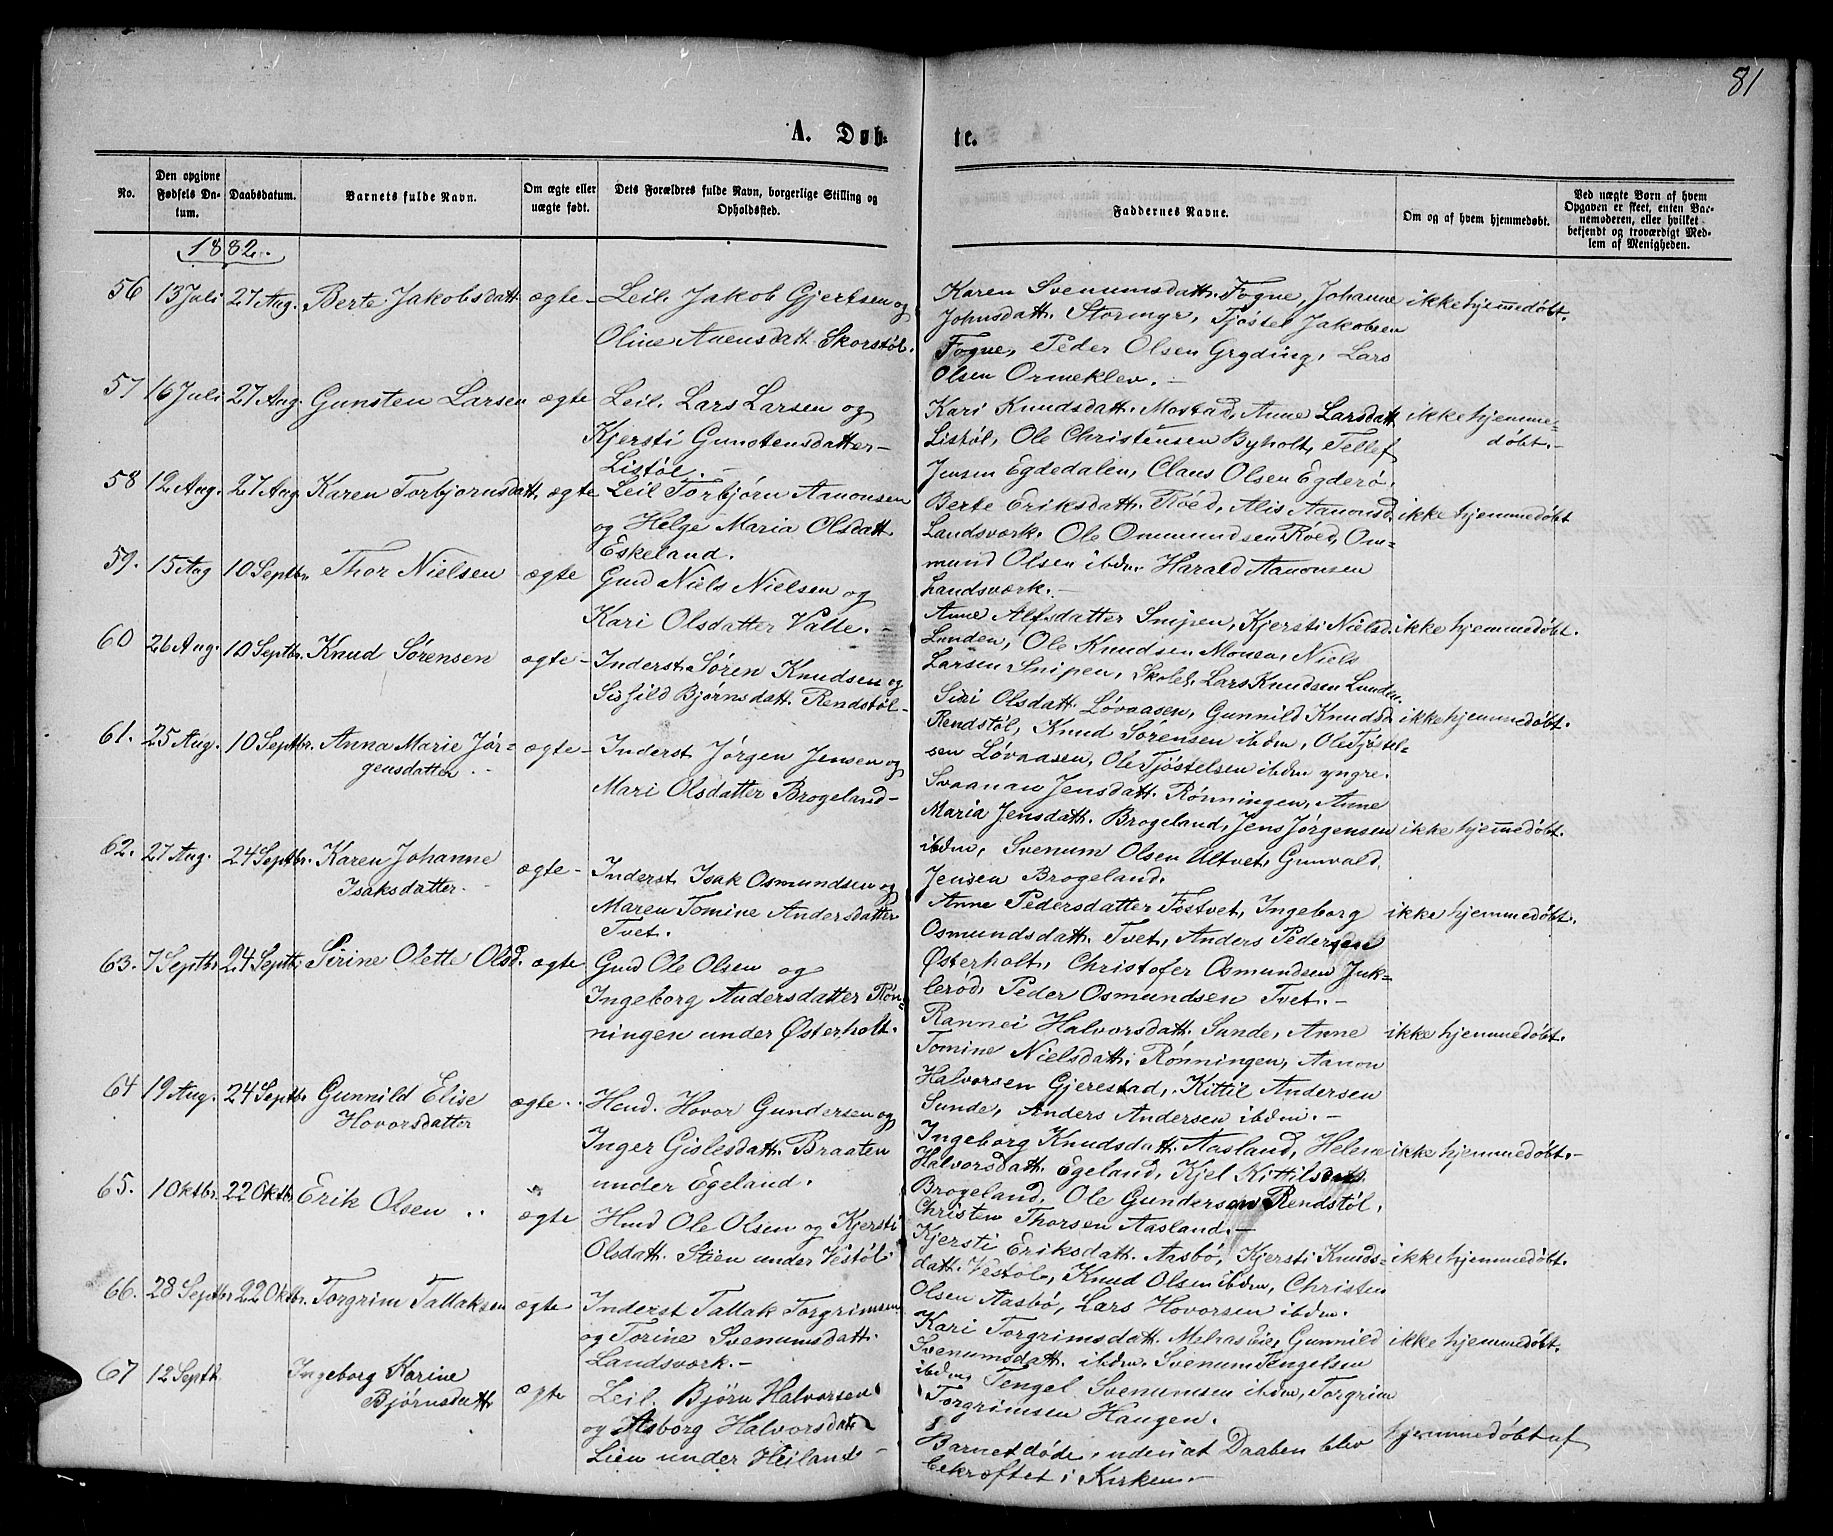 81
A. Døb-
te.
No.
Den opgivne Fødsels Da-
tum.
Daabsdatum.
Barnets fulde Navn.
Om ægte eller uægte født.
Dets Forældres fulde Navn, borgerlige Stilling og Opholdssted.
Faddernes Navne.
Om og af hvem hjemmedøbt.
Ved uægte Børn af hvem
Opgaven er skeet, enten Bar-
nemoderen, eller hvilket
bekjendt og troværdigt Med-
lem af Menigheden.
1882.
56 13 Juli 27 Aug. Berte Jakobsdatt. ægte- Leil. Jakob Gjertsen og
Oline Aaensdatt. Skorstøl.
Karen Svenumsdatt. Fogne, Johanne ikke hjemmedøbt.
Johnsdatt. Stormyr, Tjøstel Jakobsen
Fogne, Peder Olsen Gryding, Lars
Olsen Ormeklev.-
57 16 Juli 27 Aug. Gunsten Larsen ægte Leil. Lars Larsen og
Kjersti Gunstensdatter-
Listøl.-
Kari Knudsdatt. Mostad, Anne Larsdatt. ikke hjemme-
Listøl, Ole Christensen Byholt, Tellef døbt.-
Jensen Egdedalen, Claus Olsen Egderø.
58 12 Aug. 27 Aug. Karen Torbjornsdatt. ægte Leil Torbjørn Aanonsen
og Helge Maria Olsdatt.
Eskeland.
Berte Eriksdatt. Røed, Alis Aanonsd. ikke hjemmedøbt
Landsværk. Ole Ommundsen Røed, Om-
mund Olsen ibdm. Harald Aanonsen
Landsværk.-
59. 15 Aug 10 Septbr. Thor Nielsen ægte Gmd Niels Nielsen og
Kari Olsdatter Valle.-
Anne Alfsdatter Snipen, Kjersti Nielsd. ikke hjemmedøbt.
Lunden, Ole Knudsen Monen, Niels
Larsen Snipen, Skolel. Lars Knudsen Lunden.
60 26 Aug. 10 Septbr. Knud Sørensen ægte- Inderst. Søren Knudsen og
Sigfild Bjørnsdatt. Rendstøl-
Siri Olsdatt. Løvaasen, Gunnild Knudsd. ikke hjemmedøbt.
Rendstøl, Knud Sørensen ibdm, Ole Tjøstel-
sen Løvaasen, Ole Tjøstelsen ibdm yngre.
61. 25 Aug. 10 Septbr. Anna Marie Jør- ægte- Inderst Jørgen Jensen og
gensdatter. Mari Olsdatter Brogeland-
Svaanau Jensdatt. Rønningen, Anne
Maria Jensdatt. Brogeland, Jens Jørgensen ikke hjemmedøbt.
ibdm, Svenum Olsen Ultvet, Gunvald
Jensen Brogeland.
62. 27 Aug. 24 Septbr. Karen Johanne ægte- Inderst. Isak Osmundsen og
Isaksdatter. Maren Tomine Andersdatter
Tvet.
Anne Pedersdatter Fostvet, Ingeborg ikke hjemmedøbt.
Osmundsdatt. Tvet, Anders Pedersen
Østerholt, Christofer Osmundsen Juk-
lerød, Peder Osmundsen Tvet.-
63. 7 Septbr. 24 Septbr. Sirine Olette Olsd. ægte Gmd Ole Olsen og
Ingeborg Andersdatter Røn-
ningen under Østerholt.
Rannei Halvorsdatt. Sande, Anne ikke hjemmedøbt.
Tomine Nielsdatt. Rønningen, Aanon
Halvorsen Gjerestad, Kittil Andersen
Sunde, Anders Andersen ibdm.-
64 19 Aug. 24 Septbr. Gunnild Elise ægte. Hmd. Hovor Gundersen og
Hovorsdatter Inger Gislesdatt. Braaten
under Egeland.
Ingeborg Knudsdatt. Aasland, Helene ikke hjemmedøbt.-
Halvorsdatt. Egeland, Kjel Kittilsen
Brogeland, Ole Gundersen Rendstøl,
Christen Thorsen Aasland.-
65. 1 Oktbr. 22 Oktbr. Erik Olsen .. ægte Hmd Ole Olsen og Kjersti
Olsdatt. Stien under Vestøl
Kjersti Eriksdatt. Aasbø, Kjersti Knuds- ikke hjemmedøbt.
datt. Vestøl, Knud Olsen ibdm, Christen
Olsen Aasbø, Lars Hovorsen ibdm.
66. 28 Septbr. 22 Oktbr. Torgrim Tallaksen ægte Inderst Tallak Torgrimsen
og Torine Svenumsdatt.
Landsværk.-
Kari Torgrimsdatt. Melraseie, Gunnild ikke hjemmedøbt.
Svenumsdatt. ibdm. Svenum Tengelsen
ibdm, Tengel Svenumsen ibdm, Torgrim
Torgrimsen Haugen.
67 12 Septb. Ingeborg Karine ægte Leil. Bjørn Halvorsen
Bjørnsdatt. og Asborg Halvorsdatt.
Lien under Heiland-
Barnet døde, uden at Daaben blev hjemmedøbt af
bekræftet i Kirken.-